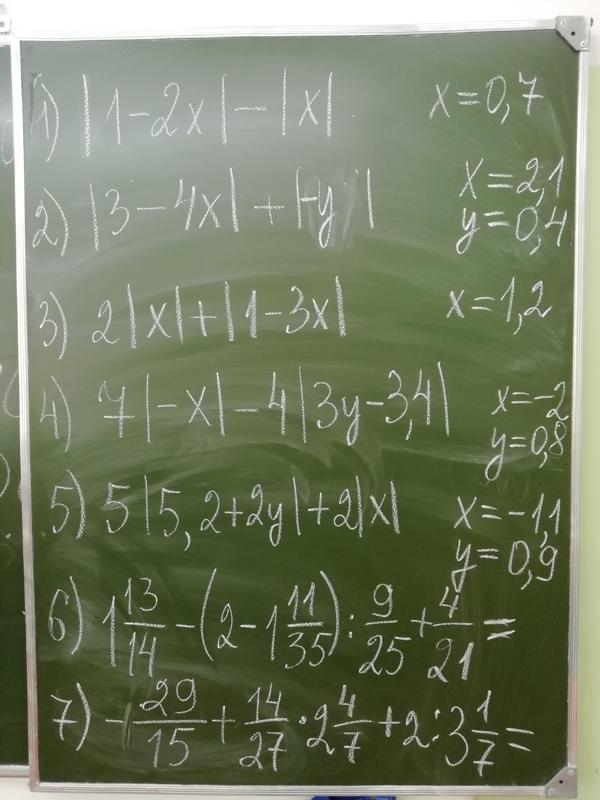 1) |1-2x|-|x| x=0,7
2) |3-4x|+|-y| x=2,1
y=0,4
3) 2|x|+|1-3x| x=1,2
4) 7|-x|-4|3y-3,4| x=-2
y=0,8
5) 5|5,2+2y|+2|x| x=-1,1
y=0,9
6) 1 13/14 - (2-1 11/35) : 9/25 + 4/21 =
7) - 29/15 + 14/27 · 2 4/7 + 2 : 3 1/7 =